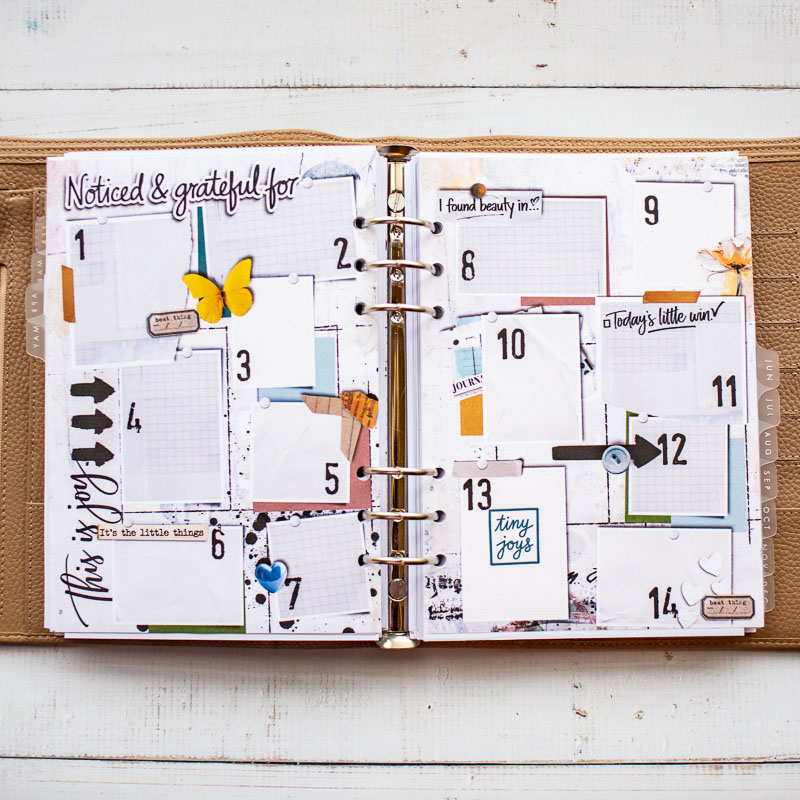 Noticed & grateful for
1
2
best thing
3
4
5
This is joy
It's the little things
6
7
I found beauty in...
8
9
10
JOURN
Today's little win
11
12
13
tiny
joys
14
best thing
JUN
JUL
AUG
SEP
OCT
NOV
MAY